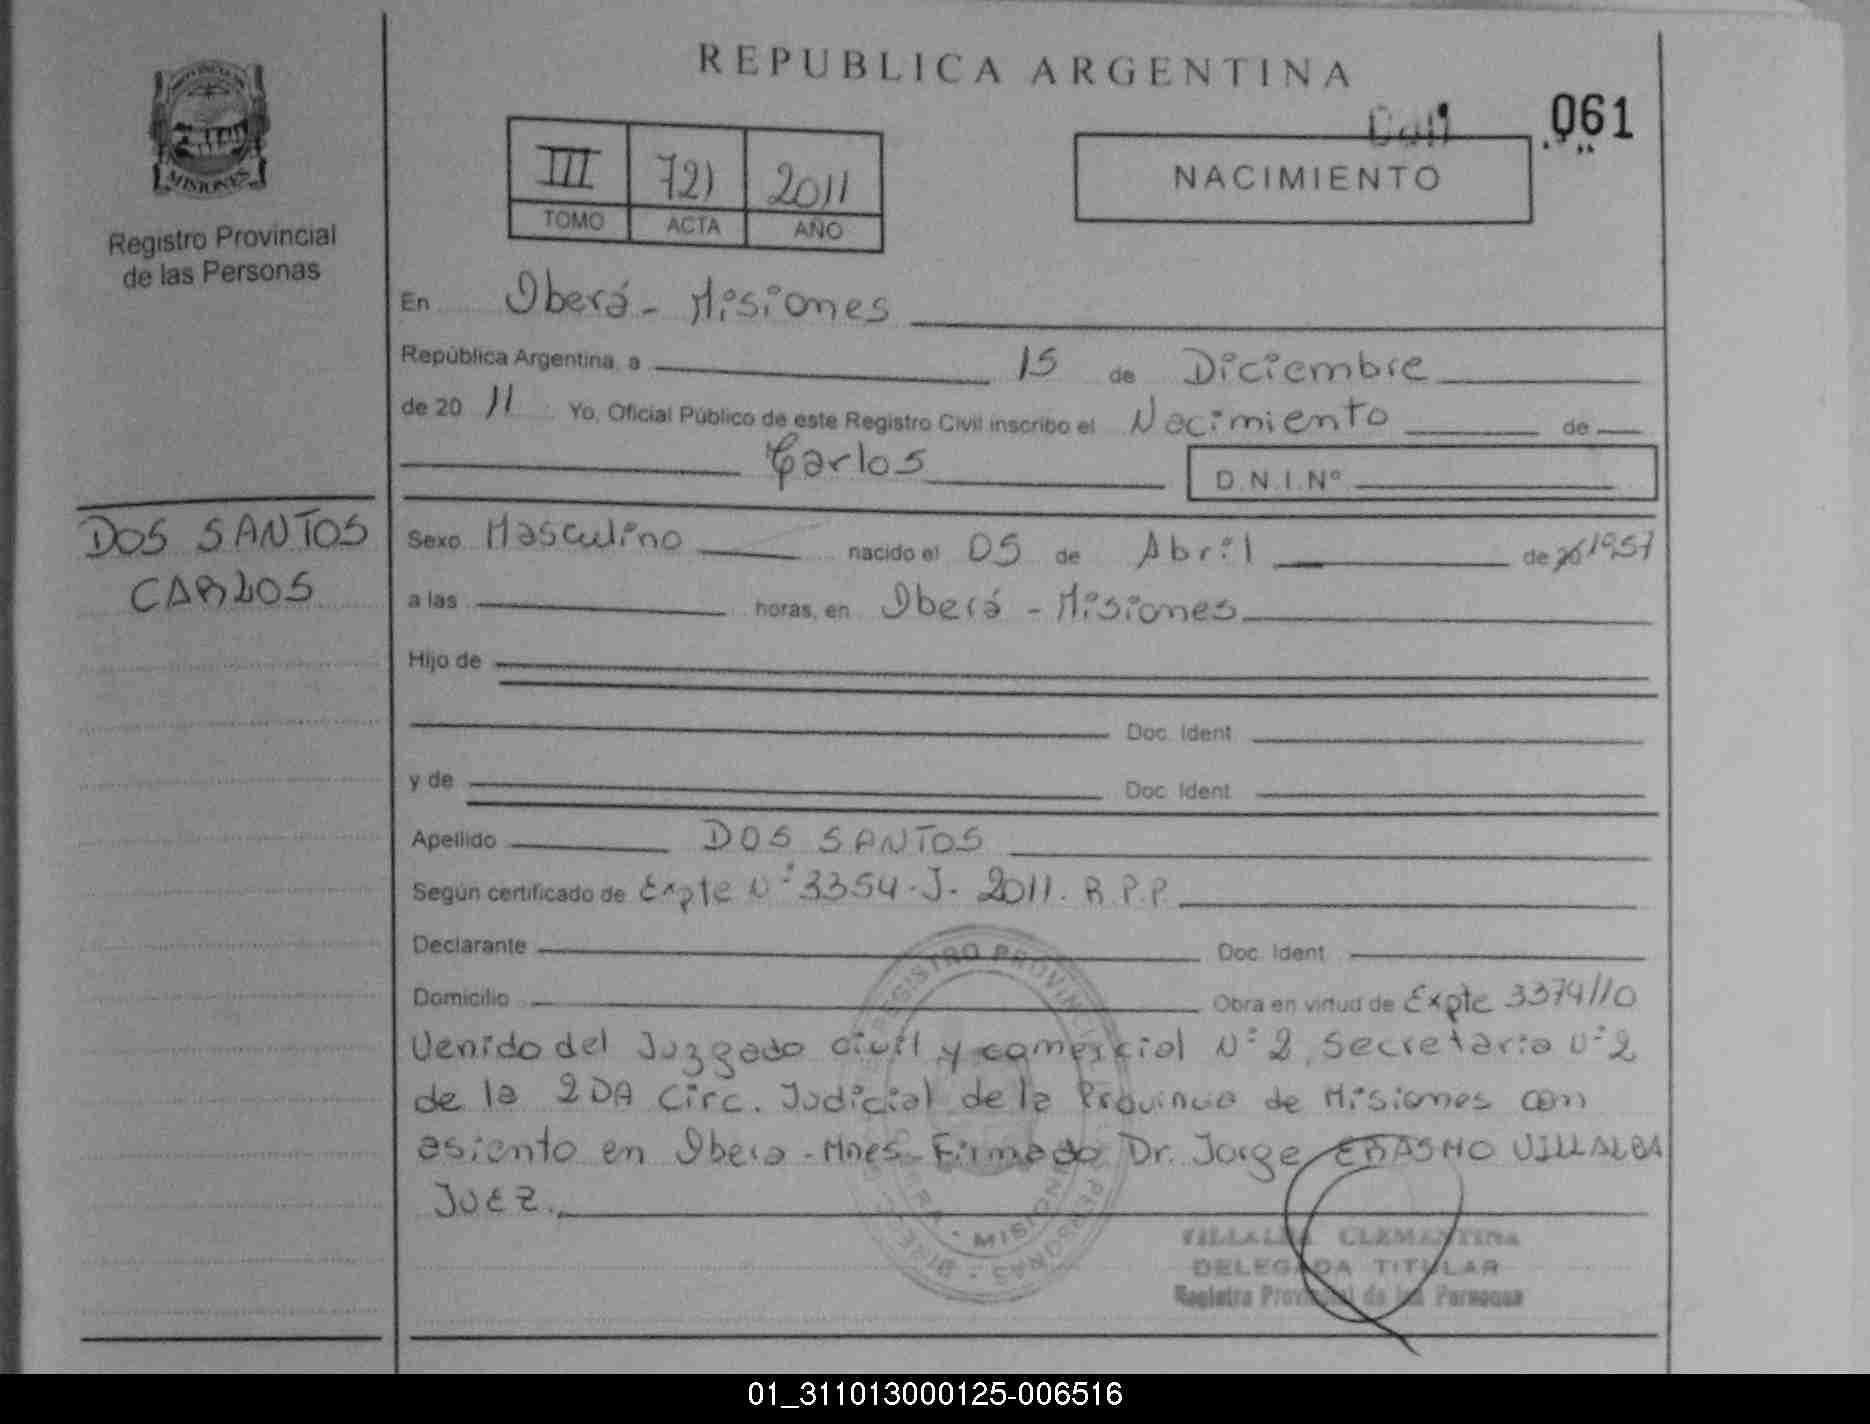 REPUBLICA ARGENTINA
061
MISIONES
Registro Provincial
de las Personas
III 721 2011
TOMO ACTA AÑO
NACIMIENTO
En Oberá - Misiones
República Argentina, a 15 de Diciembre
de 20 11 Yo, Oficial Público de este Registro Civil inscribo el Nacimiento de
Carlos D.N.I.Nº
DOS SANTOS
CARLOS
Sexo Masculino nacido el 05 de Abril de 20 1957
a las horas, en Oberá - Misiones
Hijo de
Doc. Ident
y de Doc. Ident
Apellido DOS SANTOS
Según certificado de Expte Nº 3354-J-2011. R.P.P.
Declarante Doc. Ident
Domicilio Obra en virtud de Expte 3374/10
Venido del Juzgado civil y comercial Nº 2, Secretaria Nº 2
de la 2DA Circ. Judicial de la Provincia de Misiones con
asiento en Obera - Mnes - Firmado Dr. Jorge ERASMO VILLALBA
JUEZ.
VILLALBA CLEMENTINA
DELEGADA TITULAR
Registro Provincial de las Personas
01_311013000125-006516